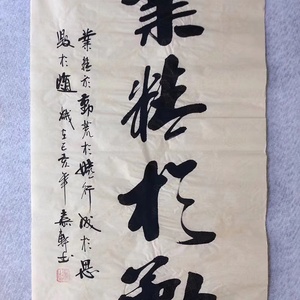 業精於勤
業精於勤荒於嬉行成於思
毀於隨 歲在己亥年